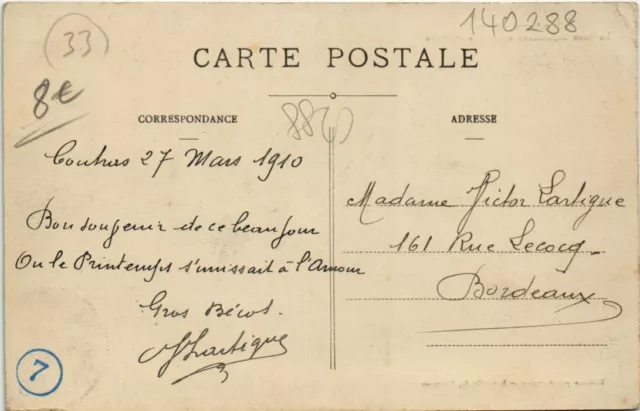 33
140288
8€
CARTE POSTALE
CORRESPONDANCE
ADRESSE
Coutras 27 Mars 1910
Bon souvenir de ce beau jour
Ou le Printemps s'unissait à l'Amour
Gros Bécot.
Lartigue
Madame Victor Lartigue
161 Rue Lecocq
Bordeaux
7